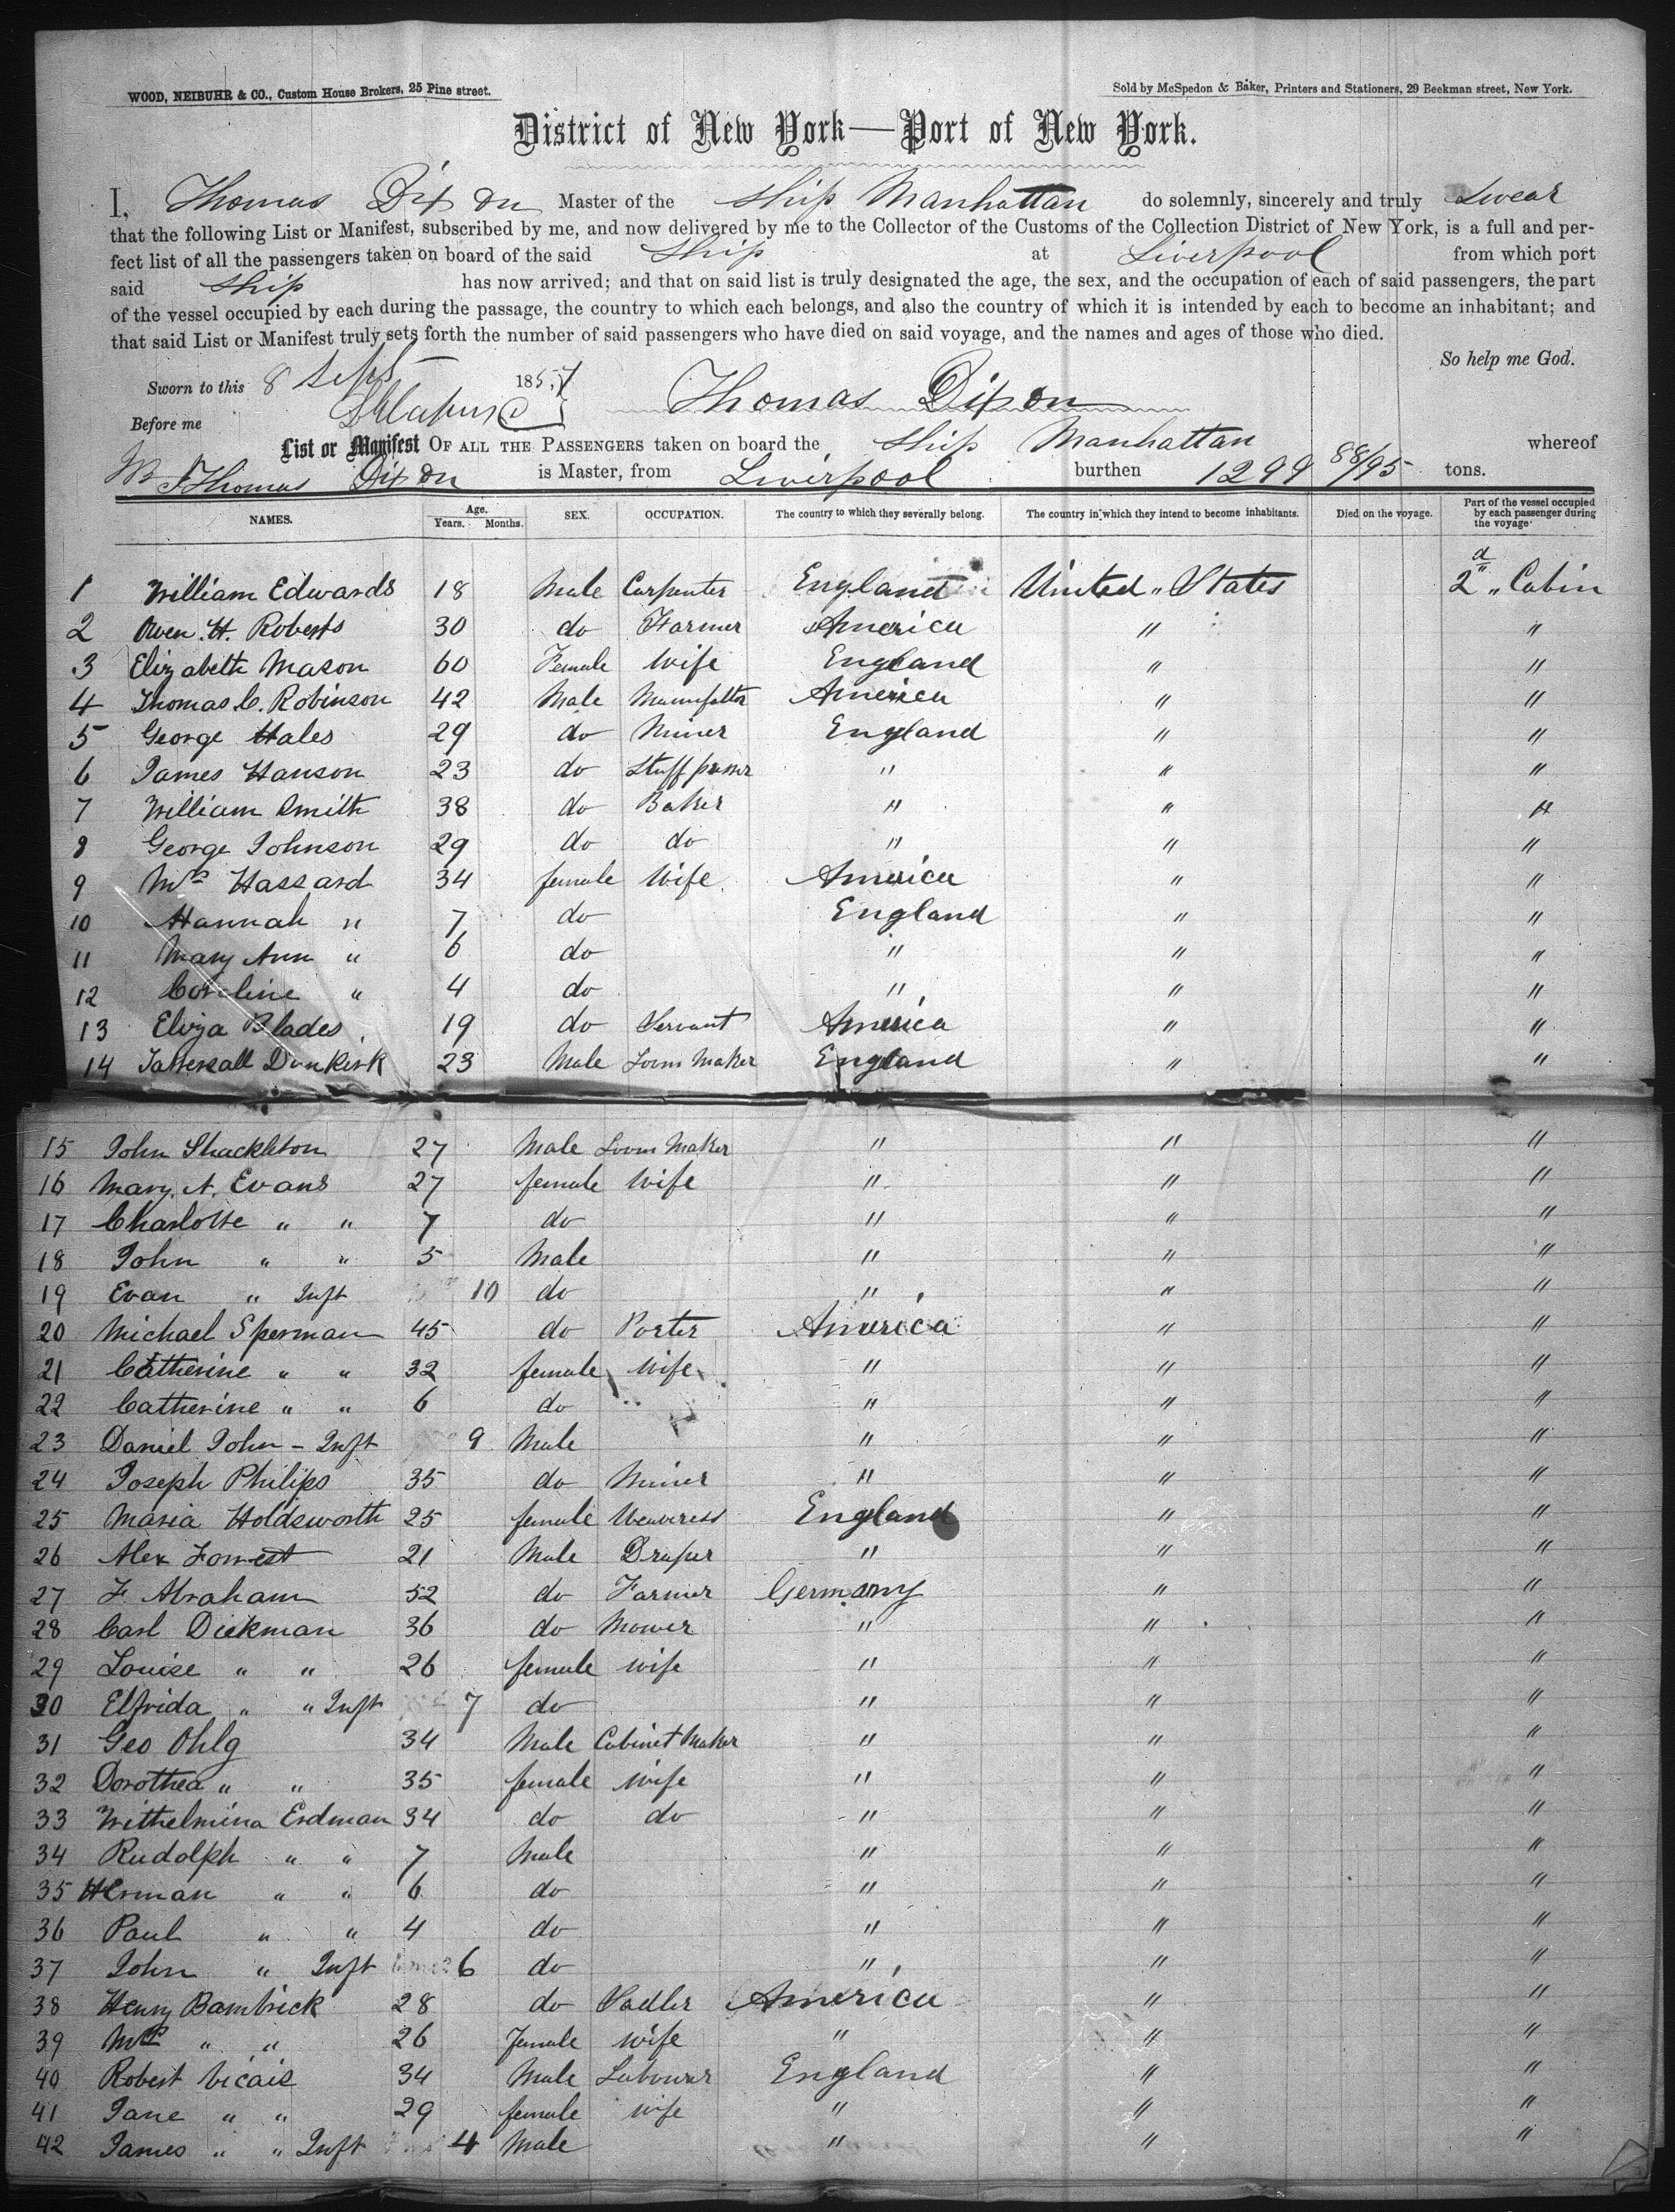 WOOD, NEIBUHR & CO., Custom House Brokers, 25 Pine street.
Sold by McSpedon & Baker, Printers and Stationers, 29 Beekman street, New York.
District of New York—Port of New York.
I, Thomas Dixon Master of the Ship Manhattan do solemnly, sincerely and truly swear
that the following List or Manifest, subscribed by me, and now delivered by me to the Collector of the Customs of the Collection District of New York, is a full and per-
fect list of all the passengers taken on board of the said Ship at Liverpool from which port
said Ship has now arrived; and that on said list is truly designated the age, the sex, and the occupation of each of said passengers, the part
of the vessel occupied by each during the passage, the country to which each belongs, and also the country of which it is intended by each to become an inhabitant; and
that said List or Manifest truly sets forth the number of said passengers who have died on said voyage, and the names and ages of those who died.
So help me God.
Sworn to this 8 Sept 1857
Thomas Dixon
Before me
List or Manifest OF ALL THE PASSENGERS taken on board the Ship Manhattan whereof
Thomas Dixon is Master, from Liverpool burthen 1299 88/95 tons.
NAMES. Age. Years. Months. SEX. OCCUPATION. The country to which they severally belong. The country in which they intend to become inhabitants. Died on the voyage. Part of the vessel occupied by each passenger during the voyage
1 William Edwards 18 Male Carpenter England United " States 2d " Cabin
2 Owen H. Roberts 30 do Farmer America " "
3 Elizabeth Mason 60 Female Wife England " "
4 Thomas C. Robinson 42 Male America " "
5 George Hales 29 do Miner England " "
6 James Hanson 23 do Stuff presser " " "
7 William Smith 38 do Baker " " "
8 George Johnson 29 do do " " "
9 Mrs Hassard 34 female Wife America " "
10 Hannah " 7 do England " "
11 Mary Ann " 6 do " " "
12 Coroline " 4 do " " "
13 Eliza Blades 19 do Servant America " "
14 Tattersall Dunkirk 23 Male Loom Maker England " "
15 John Shackleton 27 Male Loom Maker " " "
16 Mary. A. Evans 27 female Wife " " "
17 Charlotte " " 7 do " " "
18 John " " 5 Male " " "
19 Evan " Inft 10 do " " "
20 Michael Sperman 45 do Porter America " "
21 Catherine " " 32 female Wife " " "
22 Catherine " " 6 do " " "
23 Daniel John - Inft 9 Male " " "
24 Joseph Philips 35 do Miner " " "
25 Maria Holdsworth 25 female Weaveress England " "
26 Alex Forrest 21 Male Draper " " "
27 F. Abraham 52 do Farmer Germany " "
28 Carl Diekman 36 do Mower " " "
29 Louise " " 26 female wife " " "
30 Elfrida " " Inft 7 do " " "
31 Geo Ohlg 34 Male Cabinet Maker " " "
32 Dorothea " " 35 female wife " " "
33 Wilhelmina Erdman 34 do do " " "
34 Rudolph " " 7 Male " " "
35 Herman " " 6 do " " "
36 Paul " " 4 do " " "
37 John " Inft 6 do " " "
38 Henry Bambrick 28 do Sadler America " "
39 Mrs " " 26 Female wife " " "
40 Robert Vicais 34 Male Labourer England " "
41 Jane " " 29 female wife " " "
42 James " " Inft 4 Male " " "